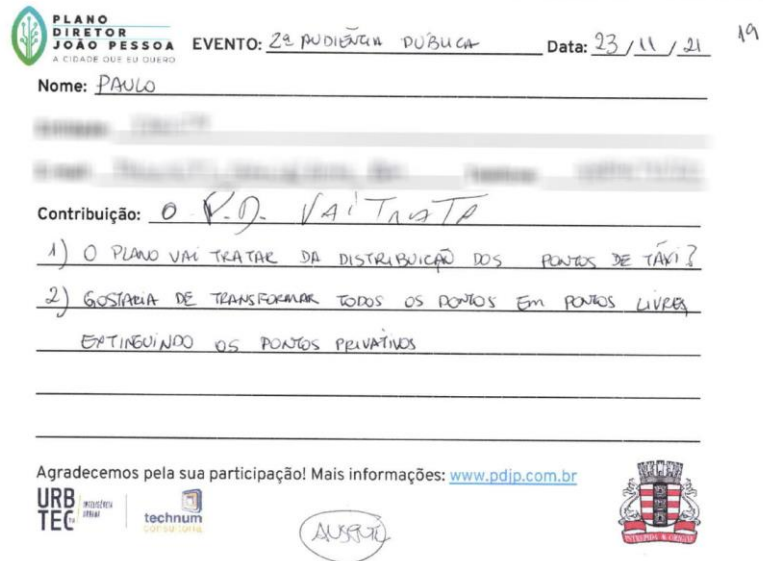 PLANO
DIRETOR
JOÃO PESSOA
A CIDADE QUE EU QUERO
EVENTO: 2ª AUDIÊNCIA PÚBLICA Data: 23/11/21 19
Nome: PAULO
Contribuição: O P.D. VAI TRATA
1) O PLANO VAI TRATAR DA DISTRIBUIÇÃO DOS PONTOS DE TÁXI?
2) GOSTARIA DE TRANSFORMAR TODOS OS PONTOS EM PONTOS LIVRES
EXTINGUINDO OS PONTOS PRIVATIVOS
Agradecemos pela sua participação! Mais informações: www.pdjp.com.br
URB
TEC
INTELIGÊNCIA
URBANA
technum
consultoria
AUSENTE